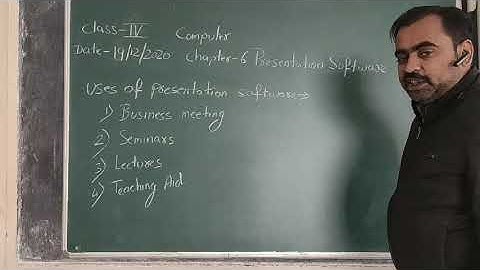 Class-IV Computer
Date-19/12/2020 Chapter-6 Presentation Software
Uses of presentation software→
1) Business meeting
2) Seminars
3) Lectures
4) Teaching Aid